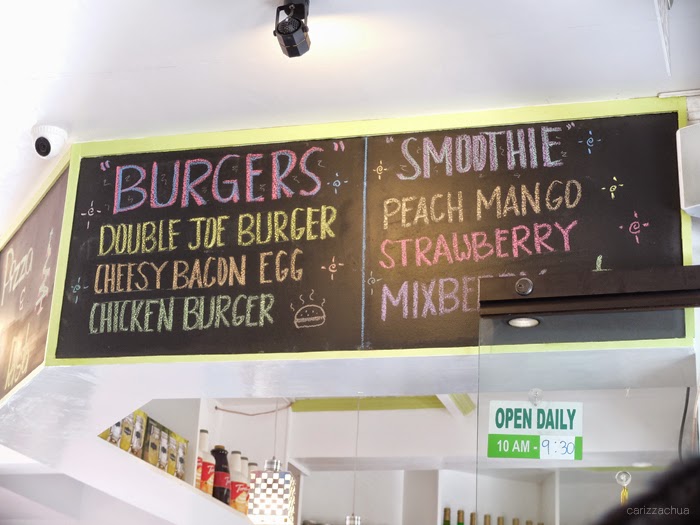 "BURGERS"
DOUBLE JOE BURGER
CHEESY BACON EGG
CHICKEN BURGER
"SMOOTHIE"
PEACH MANGO
STRAWBERRY
Pizza
&
OPEN DAILY
10 AM - 9:30
carizzachua